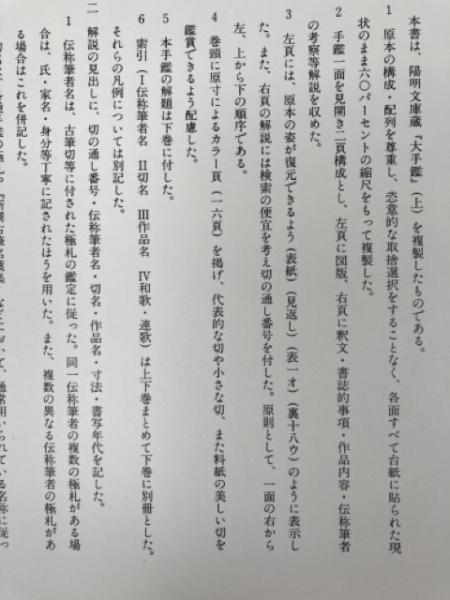 本書は、陽明文庫蔵『大手鑑』(上)を複製したものである。
1 原本の構成・配列を尊重し、恣意的な取捨選択をすることなく、各面すべて台紙に貼られた現
状のまま六〇パーセントの縮尺をもって複製した。
2 手鑑一面を見開き二頁構成とし、左頁に図版、右頁に釈文・書誌的事項・作品内容・伝称筆者
の考察等解説を収めた。
3 左頁には、原本の姿が復元できるよう(表紙)(見返し)(表一オ)(裏十八ウ)のように表示し
た。また、右頁の解説には検索の便宜を考え切の通し番号を付した。原則として、一面の右から
左、上から下の順序である。
4 巻頭に原寸によるカラー頁(一六頁)を掲げ、代表的な切や小さな切、また料紙の美しい切を
鑑賞できるよう配慮した。
5 本手鑑の解題は下巻に付した。
6 索引(Ⅰ伝称筆者名 Ⅱ切名 Ⅲ作品名 Ⅳ和歌・連歌)は上下巻まとめて下巻に別冊とした。
それらの凡例については別記した。
二 解説の見出しに、切の通し番号・伝称筆者名・切名・作品名・寸法・書写年代を記した。
1 伝称筆者名は、古筆切等に付された極札の鑑定に従った。同一伝称筆者の複数の極札がある場
合は、氏・家名・身分等丁寧に記されたほうを用いた。また、複数の異なる伝称筆者の極札があ
る場合はこれを併記した。
において、通常用いられている名称に従っ